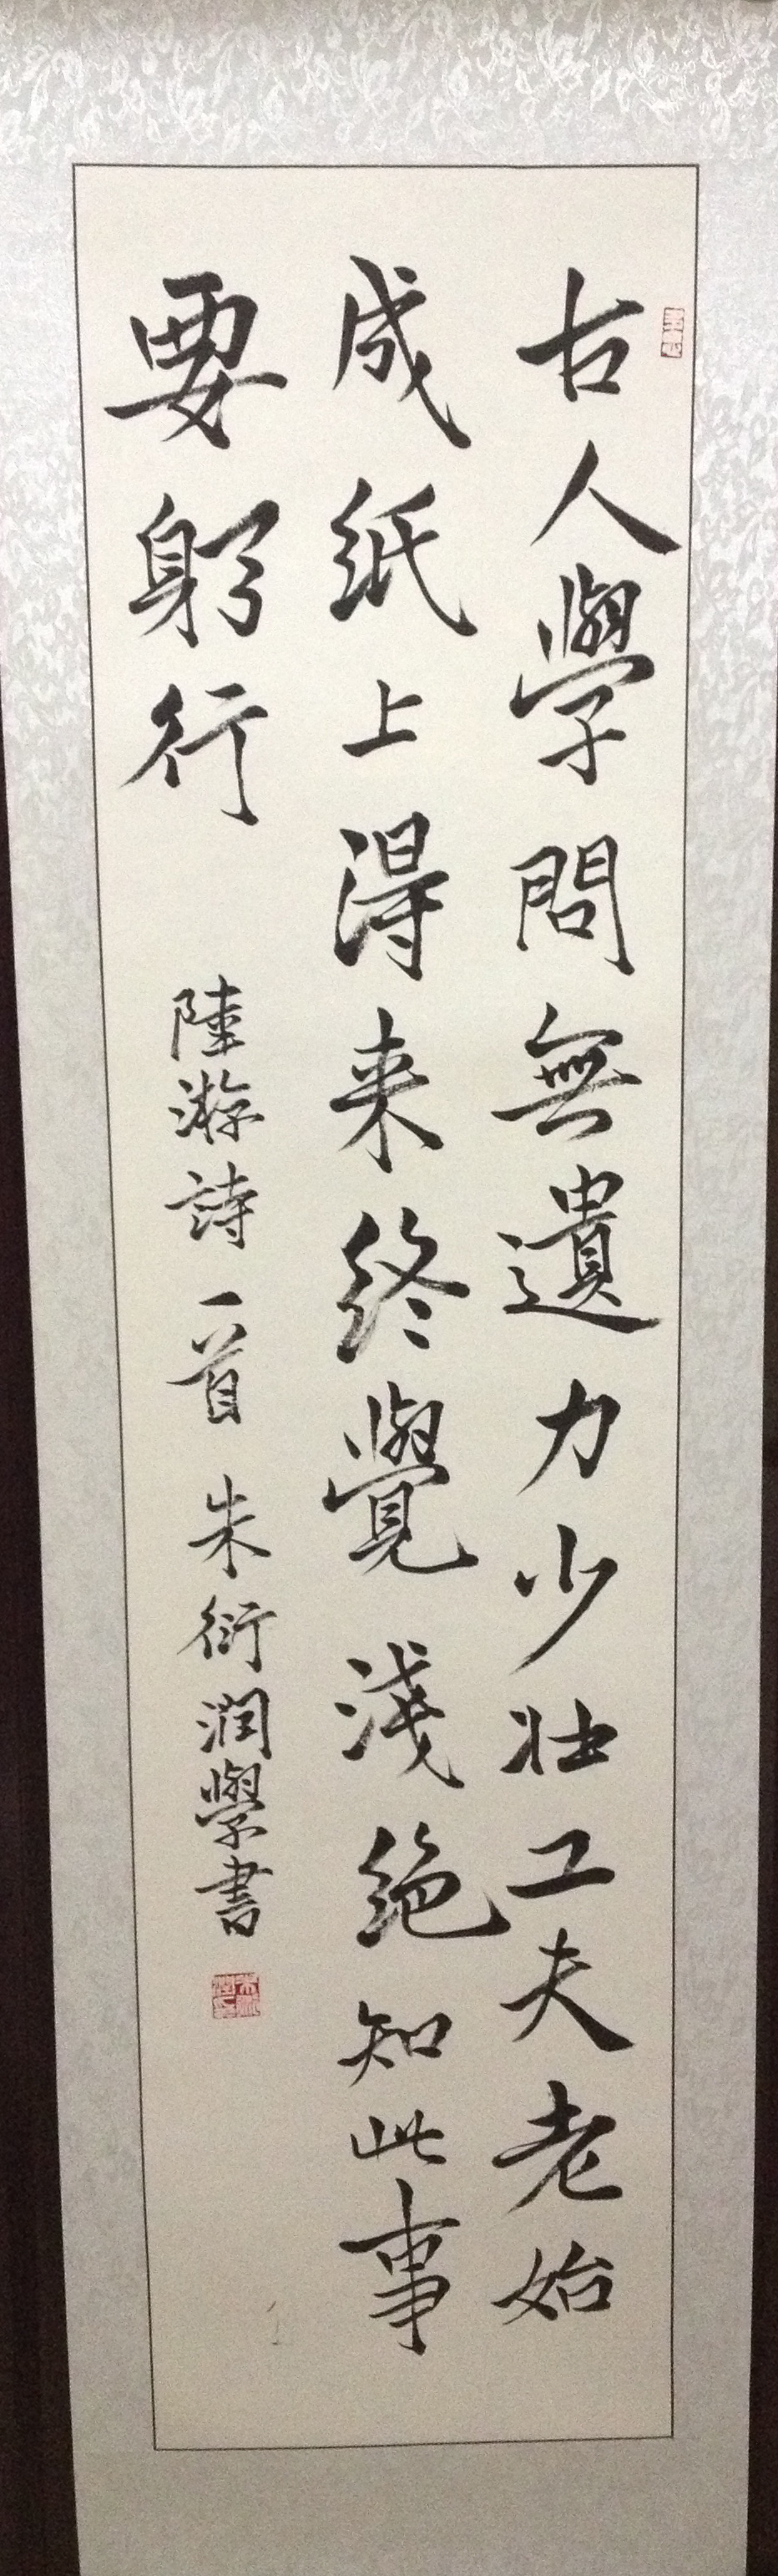 古人學問無遺力少壯工夫老始
成紙上得来終覺淺絕知此事
要躬行
陸游詩一首 朱衍潤學書